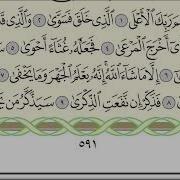 رَبِّكَ ٱلْأَعْلَى ١ ٱلَّذِى خَلَقَ فَسَوَّىٰ ٢ وَٱلَّذِى
أَخْرَجَ ٱلْمَرْعَىٰ ٤ فَجَعَلَهُۥ غُثَآءً أَحْوَىٰ ٥
٦ إِلَّا مَا شَآءَ ٱللَّهُ إِنَّهُۥ يَعْلَمُ ٱلْجَهْرَ وَمَا يَخْفَىٰ ٧
٨ فَذَكِّرْ إِن نَّفَعَتِ ٱلذِّكْرَىٰ ٩ سَيَذَّكَّرُ مَن
٥٩١